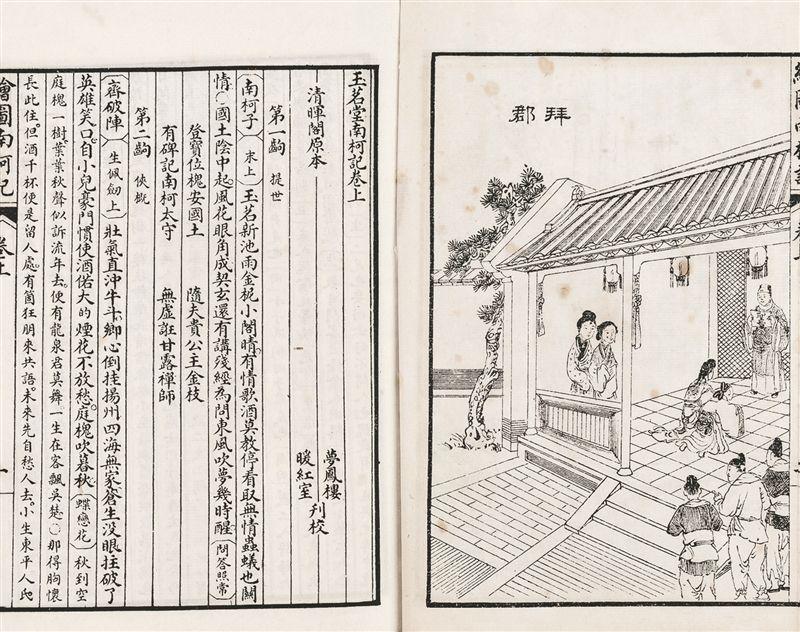 拜郡
玉茗堂南柯記卷上
清暉閣原本 夢鳳樓 暖紅室 刊校
第一齣 提世
南柯子 末上 玉茗新池雨金柅小閣晴有情歌酒莫教停看取無情蟲蟻也關
情○國土陰中起風花眼角成契玄還有講殘經為問東風吹夢幾時醒 問答照常
登寶位槐安國土 隨夫貴公主金枝
有碑記南柯太守 無虛誑甘露禪師
第二齣 俠概
齊破陣 生佩劒上 壯氣直沖牛斗鄉心倒挂揚州四海無家蒼生沒眼拄破了
英雄笑口自小兒豪門慣使酒偌大的煙花不放愁庭槐吹暮秋 蝶戀花 秋到空
庭槐一樹葉葉秋聲似訴流年去便有龍泉君莫舞一生在客飄吳楚○那得胸懷
長此住但酒千杯便是留人處有箇狂朋來共語未來先自愁人去小生東平人氏
繪圖南柯記 卷上 一